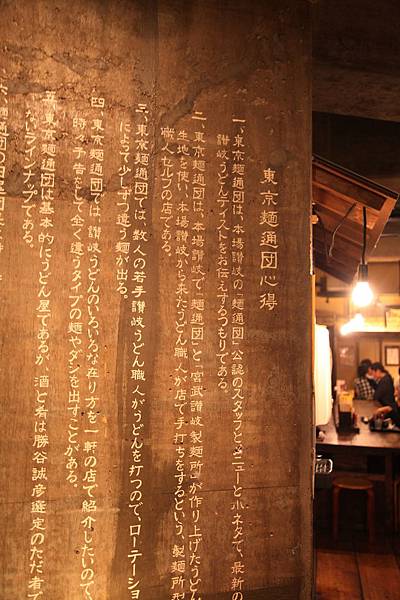 東京麺通団心得
一、東京麺通団は、本場讃岐の「麺通団」公認のスタッフとメニューと小ネタで、最新の
讃岐うどんテイストをお伝えするつもりである。
二、東京麺通団は、本場讃岐で「麺通団」と「宮武讃岐製麺所」が作り上げたうどん
生地を使い、本場讃岐から来たうどん職人が店で手打ちをするという、製麺所型
職人セルフの店である。
三、東京麺通団では、数人の若手讃岐うどん職人がうどんを打つので、ローテーショ
によって少しずつ違う麺が出る。
四、東京麺通団では、讃岐うどんのいろいろな在り方を一軒の店で紹介したいので、
時々予告なしで全く違うタイプの麺やダシを出すことがある。
五、東京麺通団は基本的にうどん屋であるが、酒と肴は勝谷誠彦選定のただ者で
ないラインナップである。